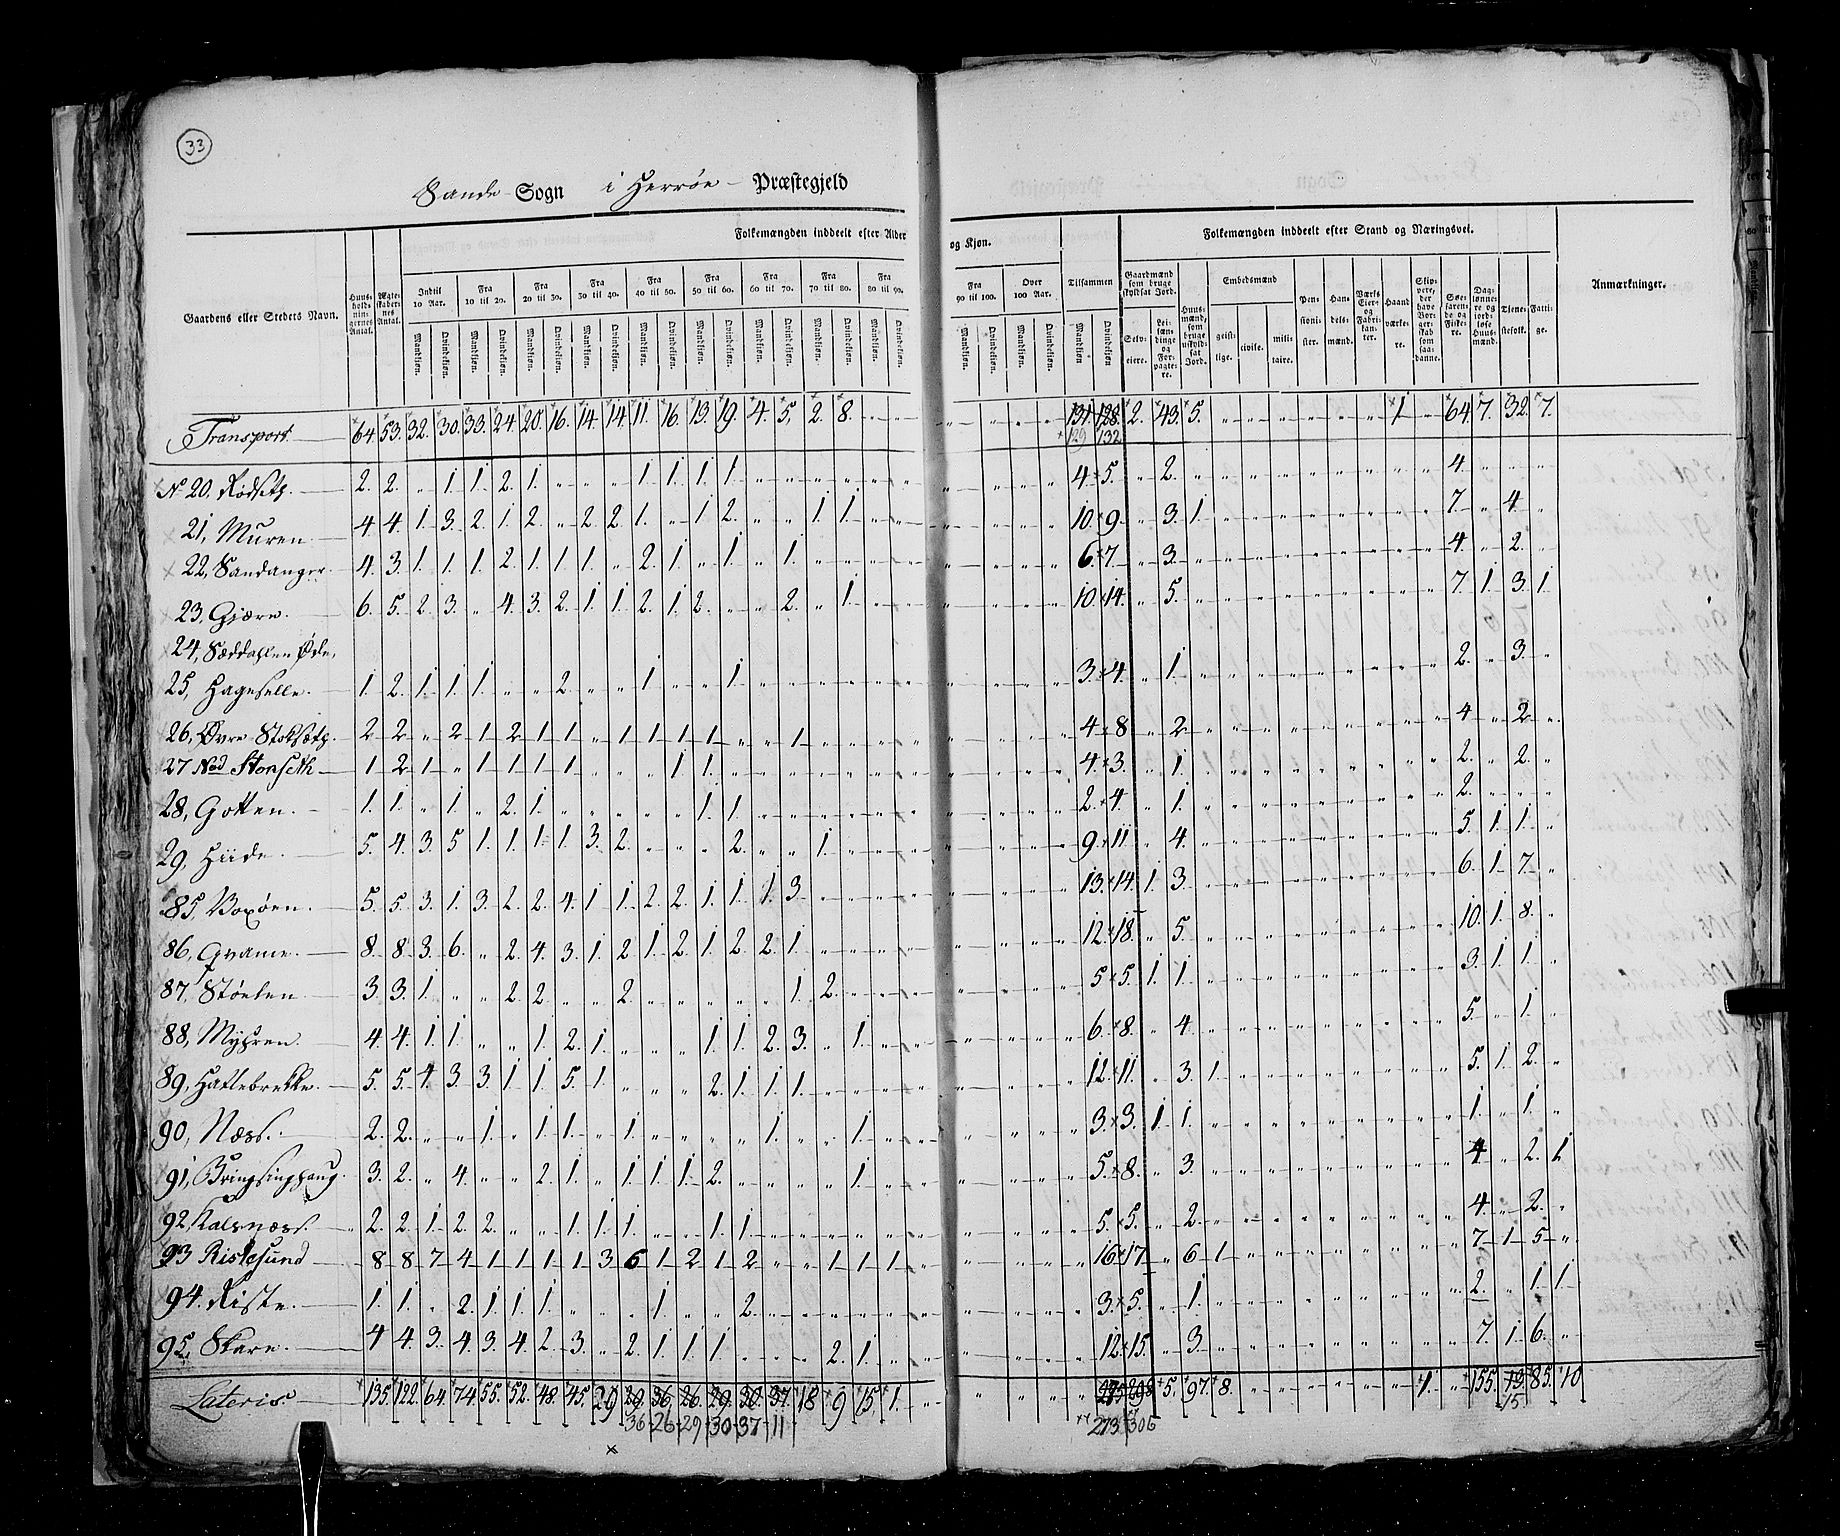 33
Sande Sogn i Herrøe Præstegjeld
Folkemængden inddeelt efter Alder og Kjøn. Folkemængden inddeelt efter Stand og Næringsvei.
Gaardens eller Stedets Navn. Huusholdningernes Antal. Ægteskabernes Antal. Indtil 10 Aar. Fra 10 til 20. Fra 20 til 30. Fra 30 til 40. Fra 40 til 50. Fra 50 til 60. Fra 60 til 70. Fra 70 til 80. Fra 80 til 90. Fra 90 til 100. Over 100 Aar. Tilsammen Gaardmænd som bruge skyldsat Jord. Huusmænd som bruge uskyldsat Jord. Embedsmænd Pensionister. Handelsmænd. Værks Eier og Fabrikanter. Haandværkere. Skippere, der have Borgerskab som saadanne. Søefarende og Fiskere. Daglønnere og jordløse Huusmænd. Tjenestefolk. Fattige. Anmærkninger.
Mandkjøn. Qvindekjøn. Mandkjøn. Qvindekjøn. Mandkjøn. Qvindekjøn. Mandkjøn. Qvindekjøn. Mandkjøn. Qvindekjøn. Mandkjøn. Qvindekjøn. Mandkjøn. Qvindekjøn. Mandkjøn. Qvindekjøn. Mandkjøn. Qvindekjøn. Mandkjøn. Qvindekjøn. Mandkjøn. Qvindekjøn. Mandkjøn Qvindekjøn. Selveiere. Leilændinge og Forpagtere. geistlige. civile. militaire.
Transport 64. 53. 32. 30. 33. 24. 20. 16. 14. 14. 11. 16. 13. 19. 4. 5. 2. 8. 131. 128. 2. 43. 5. 1 64. 7. 32. 7.
129 132
No 20. Rødseth. 2. 2. " 1. 1. 2. 1. " " " 1. 1. 1. 1. 4. 5. " 2. 4.
21, Muren. 4. 4. 1. 3. 2. 1. 2. " 2. 2. 1. " 1. 2. " " 1. 1. 10. 9. " 3. 1. 7. " 4.
22, Sandanger. 4. 3. 1. 1. 1. 2. 1. 1. 1. " 2. 1. " 1. " 1. 6. 7. " 3. 4. " 2.
23, Gjærde. 6. 5. 2. 3. " 4. 3. 2. 1. 1. 2. 1. 2. " " 2. " 1. 10. 14. " 5. 7. 1. 3. 1.
24, Sæddahlen Øde,
25, Hageselle. 1. 2. 1. 1. 1. " " 2. " " 1. " " 1. 3. 4. " 1. 2. " 3.
26, Øvre Stokseth. 2 2 " 2 1 2 1 1 " 1 1 1 1 " " 1 4 8 " 2 4 " 2
27 Ned Storseth 1 2 1 " 1 1 1 1 " " " 1 1. 4. 3. " 1. 2. " 2.
28, Gotten. 1. 1. " 1. " 2. 1. " " " " " 1. 1. 2. 4. " 1. 2.
29, Hiide. 5. 4. 3. 5 1. 1. 1. 1 3. 2. " " " 2. " " 1. 9. 11. " 4. 5. 1. 1.
85, Voxøen. 5. 5. 3. 1. 3. 2. 2. 4. 1 1. 2. 2. 1. 1. 1. 3. 13. 14. 1. 3. 6. 1. 7.
86, Qvame. 8. 8. 3. 6. " 2. 4. 3. 1. 2 1. 2. 1. 2. 2. 1. 12. 18. " 5. 10. 1. 8.
87, Støelen 3. 3. 1. " " 2. 2. " " 2. " " " " " 1. 2. 5. 5. 1. 1. 3. 1. 1.
88, Myhren. 4. 4. 1. 1. " " 1. 2. 1. " " " 1. 1. 2. 3. " 1. 6. 8. " 4. 5. " 1.
89, Hatlebrekke. 5. 5. 4. 3. 3. 1. 1. 5. 1. " " " 2. 1. 1. 1. 12. 11. " 3. 1. 5. 1. 2.
90, Næss. 2. 2. " " 1. " 1. 1. " 1. " " " " 1. " " 1. 3. 3. 1. 1. 1. " 1.
91, Bringsinghaug. 3. 2. " 4. " " 2. 1. " 1. 1. 1. 2. " " " " 1. 5. 8. " 3. 4. " 2. 1.
92, Kalsnæss. 2. 2. 1. 2. 2. " " 1. 1. 1. " " 1. 1. 5. 5. " 2. 4. " 2.
93 Ristesund 8 8 7 4 1 1 1 1 3 6 1. 2 1 2 " " 1 1 1 16 17 " 6 1 7 1 5
94. Riste. 1. 1. " 2. 1. 1. 1. " " " 1. " " 2. 3. 5. " 1. 2. " 1. 1.
95, Skare. 4 4. 3. 4. 3. 4. 2. 3. " 2. 1. 1. 1. " " " 2. 1. 12. 15. " 3. 7. 1. 6.
Lateris. 135. 122. 64. 74. 55. 52. 48. 45. 29 29. 36. 26. 29. 30. 37. 18 9 15. 1. 5. 97. 8. 1. 155. 13. 85. 10
36 26 29 30 37 11 273 306 15